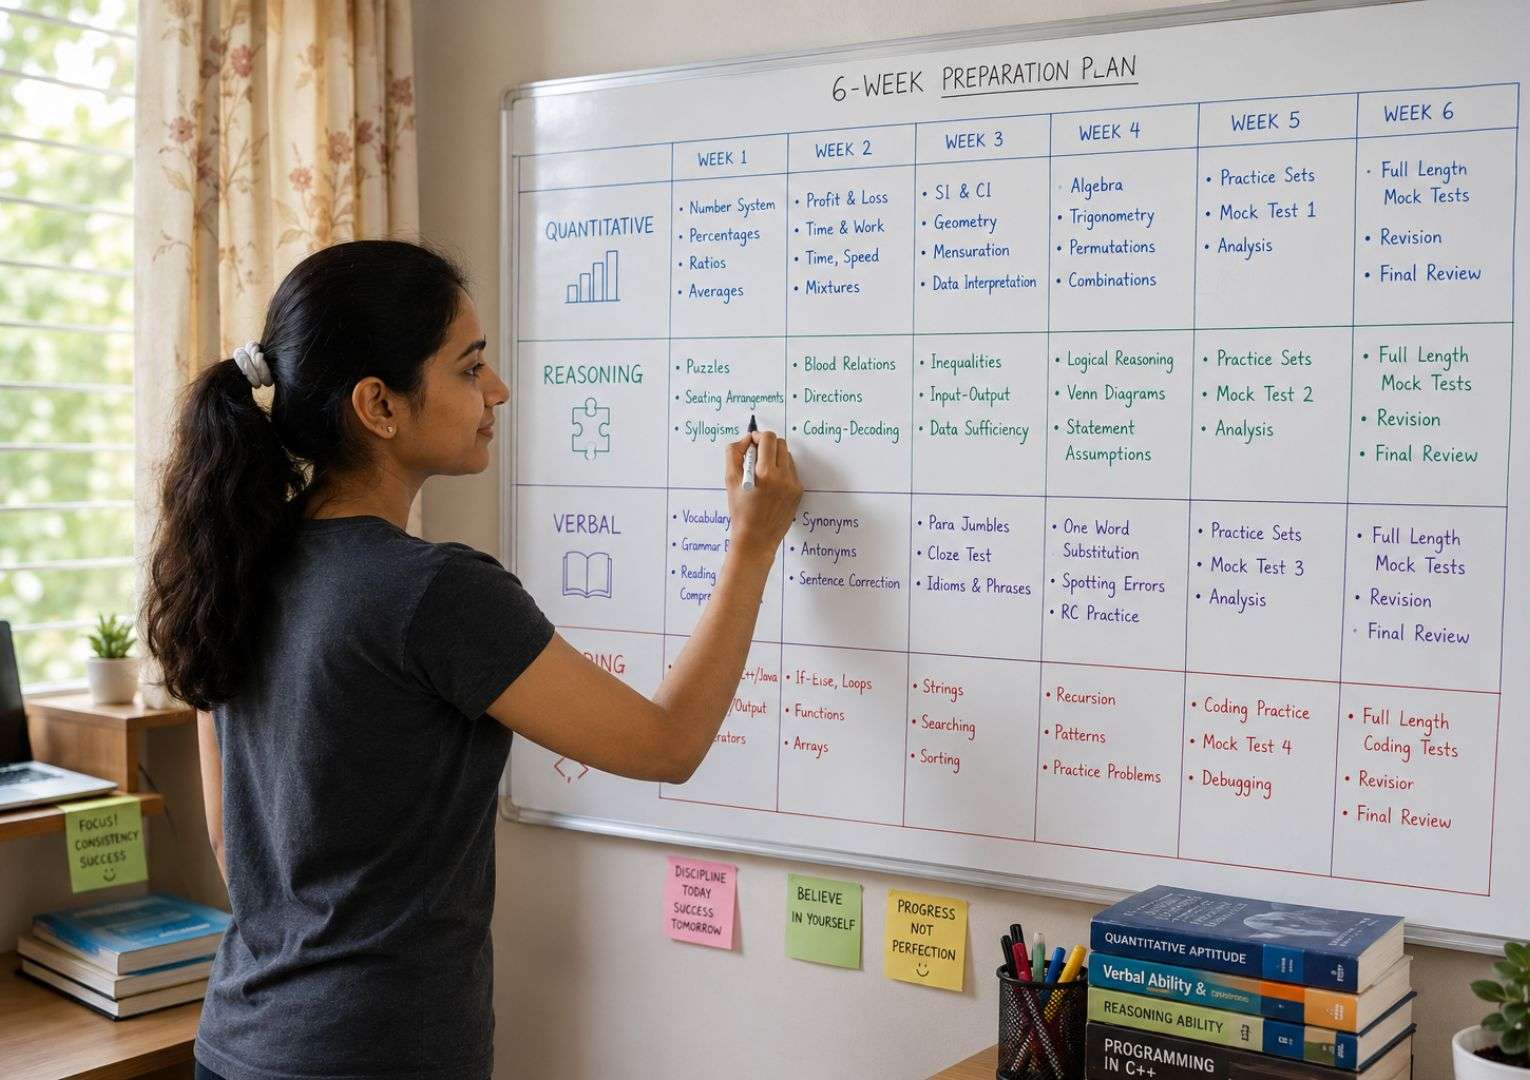 6-WEEK PREPARATION PLAN
WEEK 1
WEEK 2
WEEK 3
WEEK 4
WEEK 5
WEEK 6
QUANTITATIVE
• Number System
• Percentages
• Ratios
• Averages
• Profit & Loss
• Time & Work
• Time, Speed
• Mixtures
• SI & CI
• Geometry
• Mensuration
• Data Interpretation
• Algebra
• Trigonometry
• Permutations
• Combinations
• Practice Sets
• Mock Test 1
• Analysis
• Full Length
Mock Tests
• Revision
• Final Review
REASONING
• Puzzles
• Seating Arrangements
• Syllogisms
• Blood Relations
• Directions
• Coding-Decoding
• Inequalities
• Input-Output
• Data Sufficiency
• Logical Reasoning
• Venn Diagrams
• Statement
Assumptions
• Practice Sets
• Mock Test 2
• Analysis
• Full Length
Mock Tests
• Revision
• Final Review
VERBAL
• Vocabulary
• Grammar
• Reading
• Synonyms
• Antonyms
• Sentence Correction
• Para Jumbles
• Cloze Test
• Idioms & Phrases
• One Word
Substitution
• Spotting Errors
• RC Practice
• Practice Sets
• Mock Test 3
• Analysis
• Full Length
Mock Tests
• Revision
• Final Review
DING
C++/Java
/Output
erators
• If-Else, Loops
• Functions
• Arrays
• Strings
• Searching
• Sorting
• Recursion
• Patterns
• Practice Problems
• Coding Practice
• Mock Test 4
• Debugging
• Full Length
Coding Tests
• Revisior
• Final Review
FOCUS!
CONSISTENCY
SUCCESS
DISCIPLINE
TODAY
SUCCESS
TOMORROW
BELIEVE
IN YOURSELF
PROGRESS
NOT
PERFECTION
QUANTITATIVE APTITUDE
Verbal Ability &
REASONING ABILITY
PROGRAMMING
IN C++